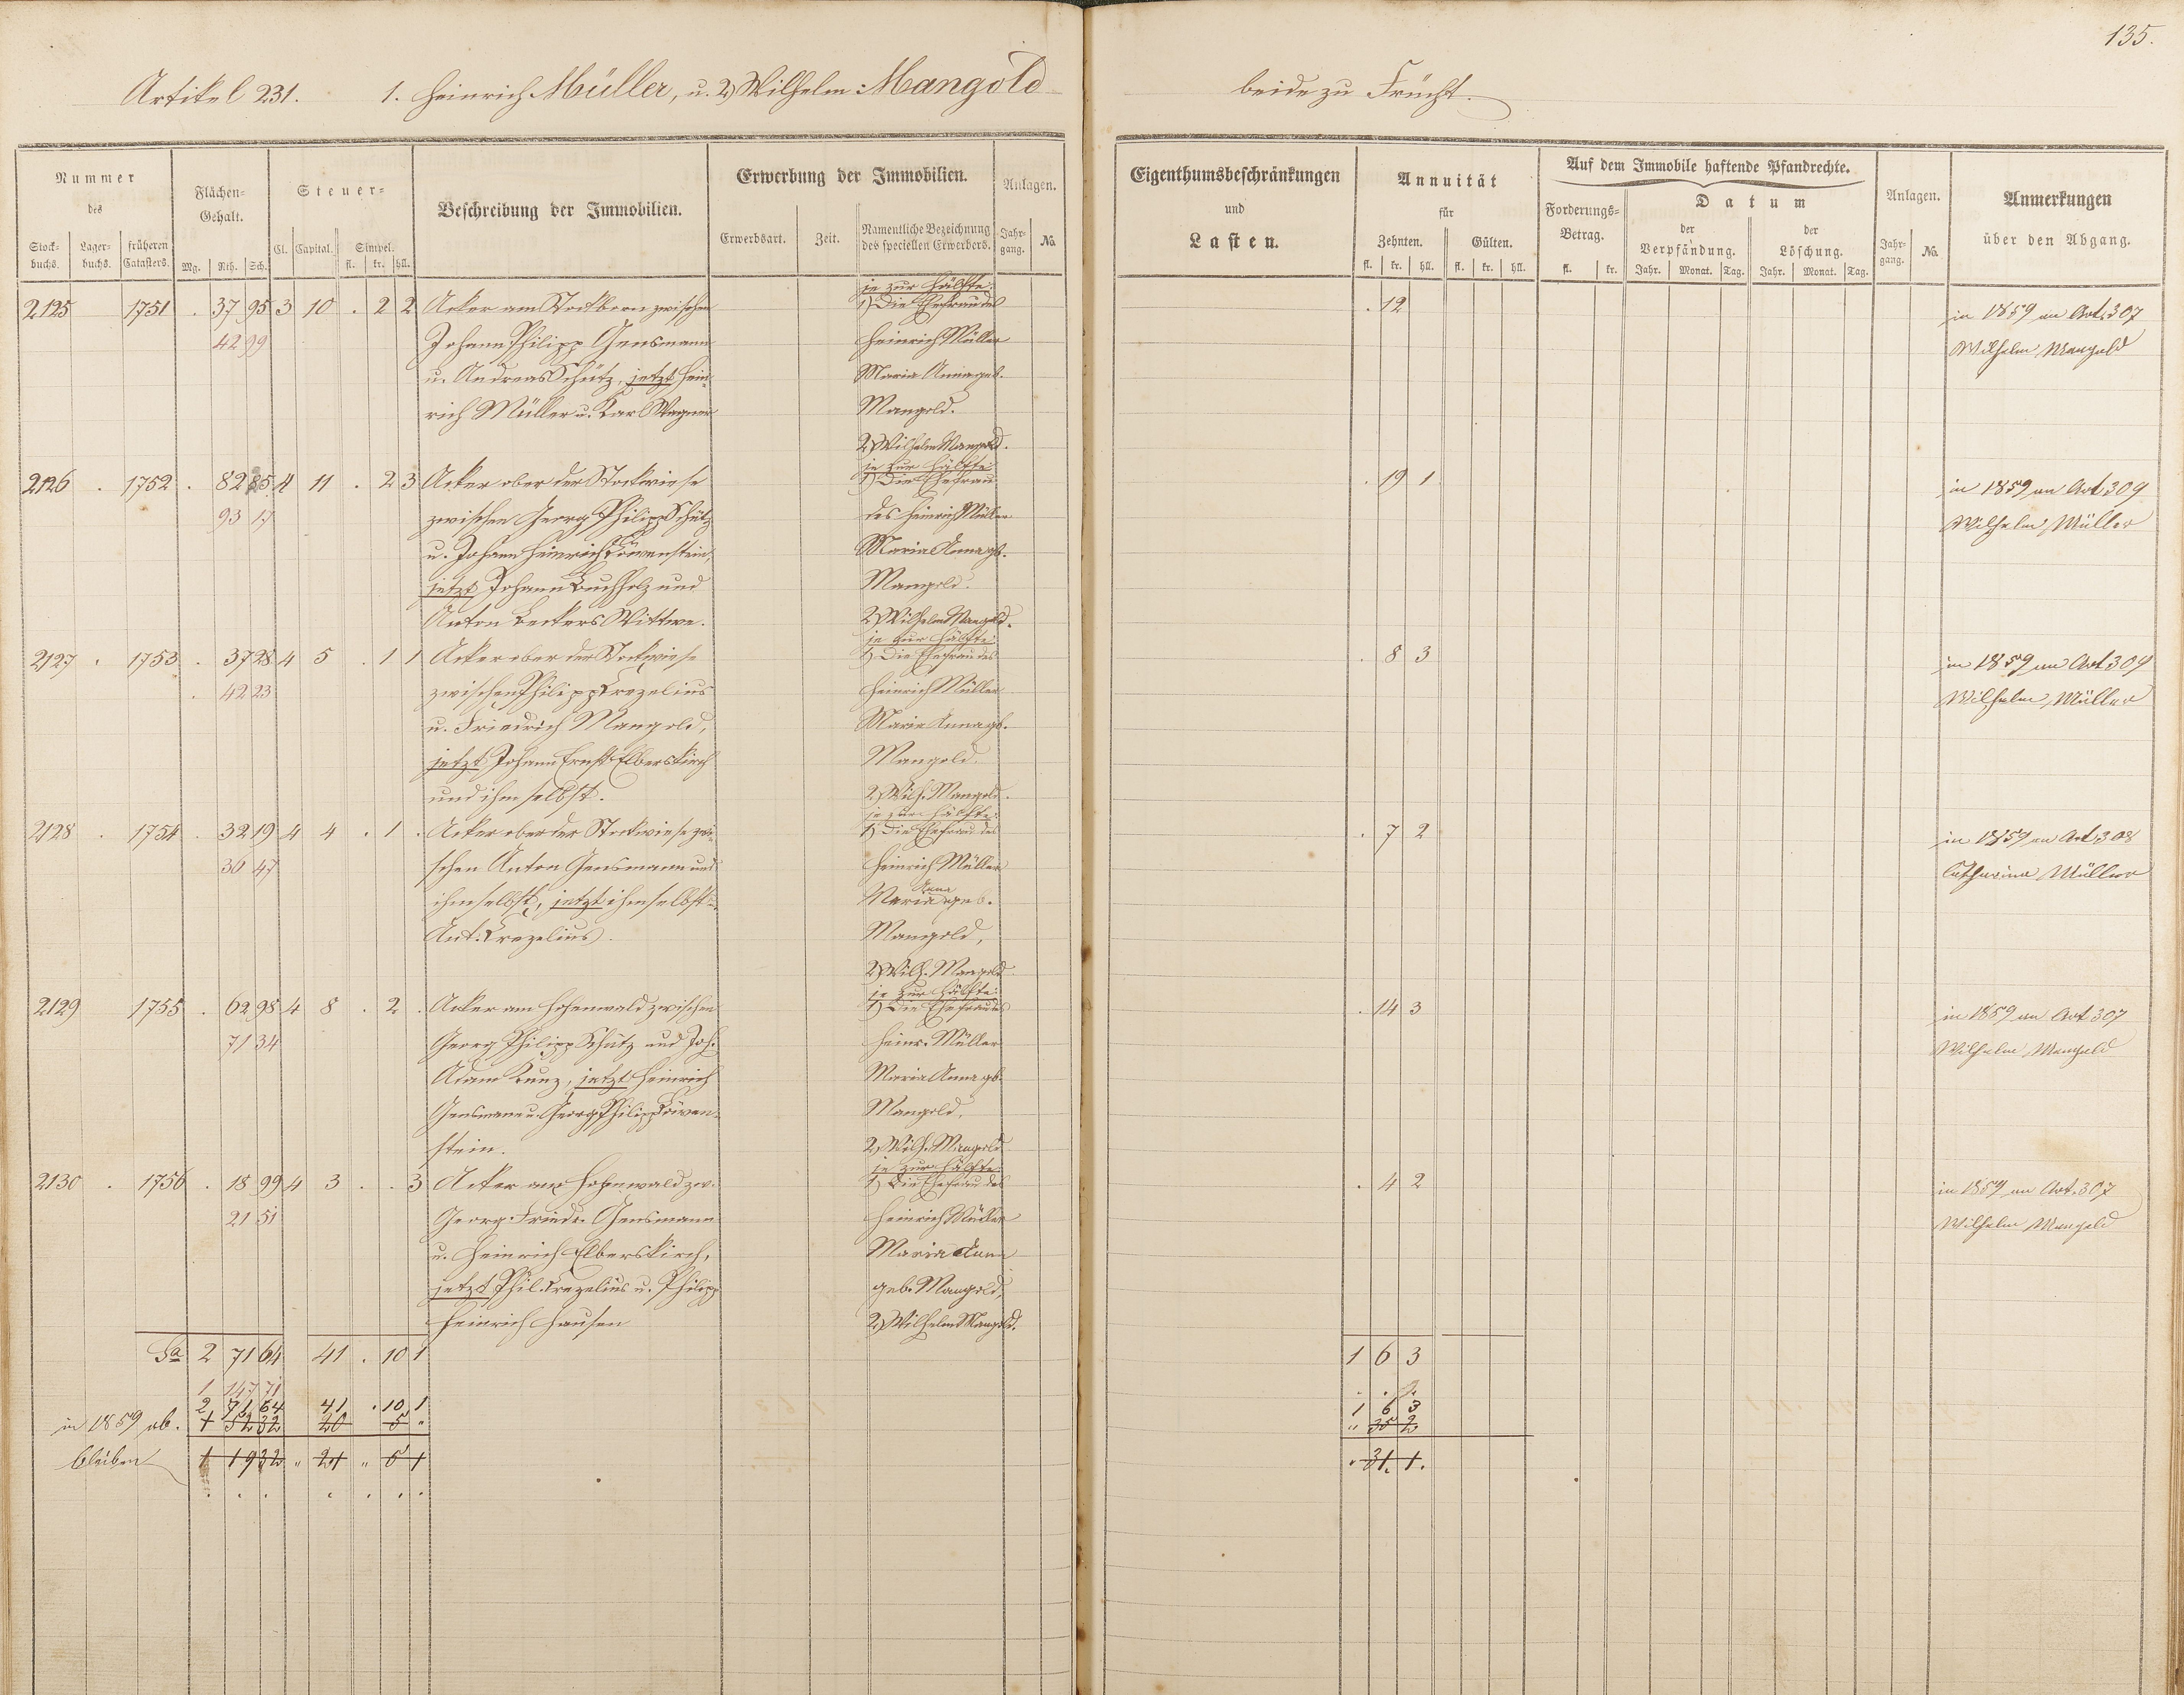 135.
Artikel 231. 1. Heinrich Müller, u. 2, Wilhelm Mangold beide zu Frücht.
Nummer des
Stockbuchs. Lagerbuchs. früheren Catasters.
Flächen-Gehalt.
Mg. Rth. Sch.
Steuer-
Cl. Capital. Simpel.
fl. kr. hll.
Beschreibung der Immobilien.
Erwerbung der Immobilien.
Erwerbsart. Zeit. Namentliche Bezeichnung des speciellen Erwerbers.
Anlagen.
Jahrgang. No.
Eigenthumsbeschränkungen
und
Lasten.
Annuität
für
Zehnten. Gülten.
fl. kr. hll. fl. kr. hll.
Auf dem Immobile haftende Pfandrechte.
Forderungs-Betrag.
fl. kr.
Datum
der Verpfändung. der Löschung.
Jahr. Monat. Tag. Jahr. Monat. Tag.
Anlagen.
Jahrgang. No.
Anmerkungen
über den Abgang.
je zur Hälfte:
2125 1751 . 37 95 3 10 . 2 2 Acker am Stockborn zwischen 1) Die Ehefrau des . 12 in 1859 an Art. 307
42 99 Johann Philipp Gensmann Heinrich Müller Wilhelm Mangold
u. Andreas Schütz, jetzt Hein- Maria Anna geb.
rich Müller u. Karl Wagner Mangold.
2, Wilhelm Mangold.
je zur Hälfte:
2126 . 1752 . 82 85 4 11 . 2 3 Acker ober der Stockwiese 1) Die Ehefrau . 19 1 in 1859 an Art 309
93 17 zwischen Georg Philipp Schütz des Heinrich Müller Wilhelm Müller
u. Johann Heinrich Löwenstein, Maria Anna gb.
jetzt Johann Buchholz und Mangold.
Anton Beckers Wittwe. 2, Wilhelm Mangold.
je zur Hälfte:
2127 . 1753 . 37 28 4 5 . 1 1 Acker ober der Stockwiese 1) Die Ehefrau des . 8 3 in 1859 an Art 309
. 42 23 zwischen Philipp Crezelius Heinrich Müller Wilhelm Müller
u. Friedrich Mangold, Maria Anna gb.
jetzt Johann Ernst Elberskirch Mangold.
und ihm selbst. 2, Wilh. Mangold.
je zur Hälfte:
2128 . 1754 . 32 19 4 4 . 1 . Acker ober der Stockwiese zwi- 1) Die Ehefrau des . 7 2 in 1859 an Art. 308
36 47 schen Anton Gensmann und Heinrich Müller Catharina Müller
ihm selbst, jetzt ihm selbst u. Maria Anna geb.
Ant. Crezelius. Mangold,
2, Wilh. Mangold
je zur Hälfte:
2129 1755 . 62 98 4 8 . 2 . Acker am Hohenwald zwischen 1) Die Ehefrau des . 14 3 in 1859 an Art 307
71 34 Georg Philipp Schütz und Joh. Heinr. Müller Wilhelm Mangold
Adam Kunz, jetzt Heinrich Maria Anna gb.
Gensmann u. Georg Philipp Löwen- Mangold,
stein. 2, Wilh. Mangold
je zur Hälfte:
2130 . 1756 . 18 99 4 3 . . 3 Acker am Hohenwald zw. 1) Die Ehefrau des . 4 2 in 1859 an Art. 307
21 51 Georg Friedr. Gensmann Heinrich Müller Wilhelm Mangold
u. Heinrich Elberskirch, Maria Anna
jetzt Phil. Crezelius u. Philipp geb. Mangold,
Heinrich Hausen 2, Wilhelm Mangold.
Sa 2 71 64 41 . 10 1 1 6 3
1 147 71
2 71 64 41 . 10 1 1 6 3
in 1859 ab. 1 52 32 20 5 " " 35 2
bleiben 1 19 32 " 21 " 5 1 " 31. 1.